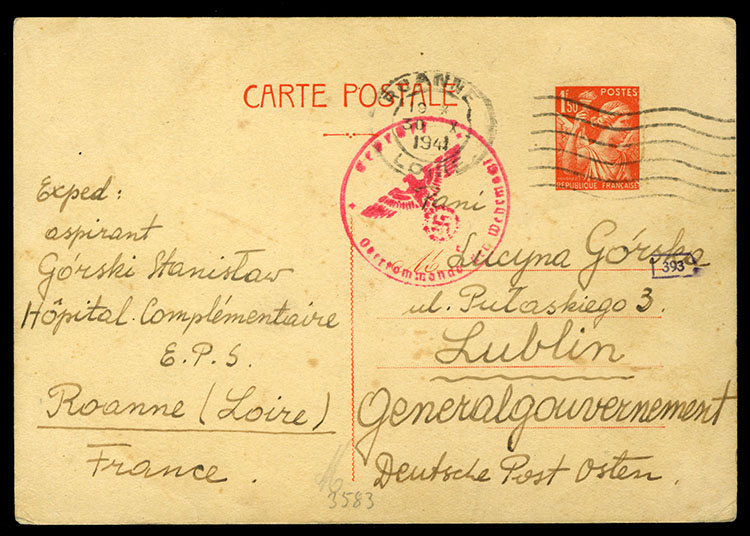 CARTE POSTALE
ROANNE
19 X
30 X
1941
LOIRE
1,50
POSTES
RÉPUBLIQUE FRANÇAISE
Geprüft
Oberkommando der Wehrmacht
Exped:
aspirant
Górski Stanisław
Hôpital Complémentaire
E.P.S.
Roanne (Loire)
France.
Pani
Lucyna Górska
393
ul. Pułaskiego 3.
Lublin
Generalgouvernement
Deutsche Post Osten.
3583